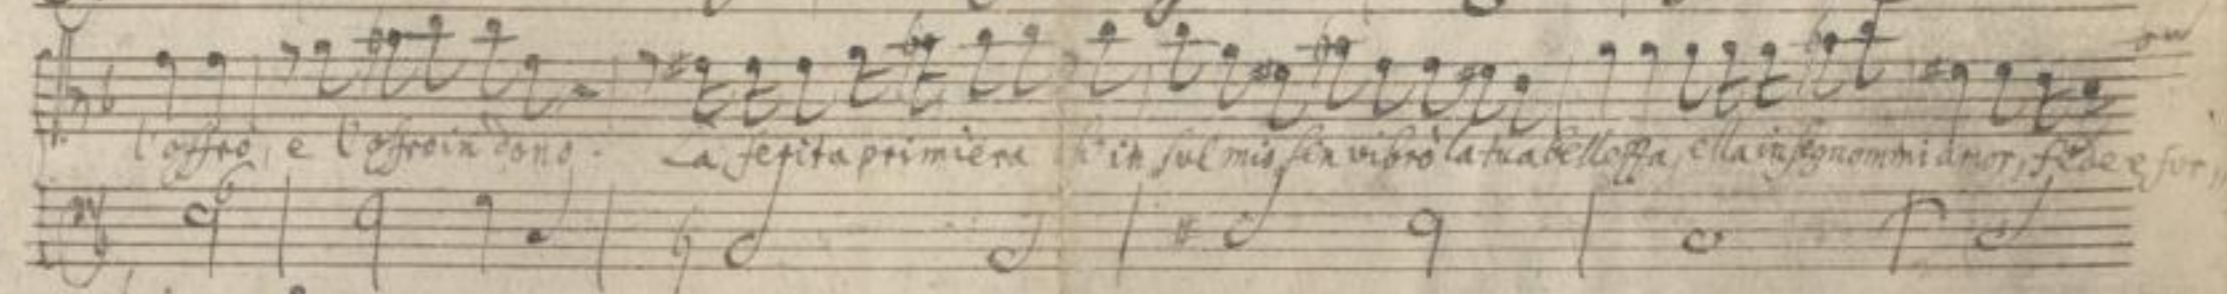 l'offro, e l'offro in dono. La ferita primiera ch'in sul mio sen vibrò la tua bellezza, ella insegnommi amor, fede e for,,